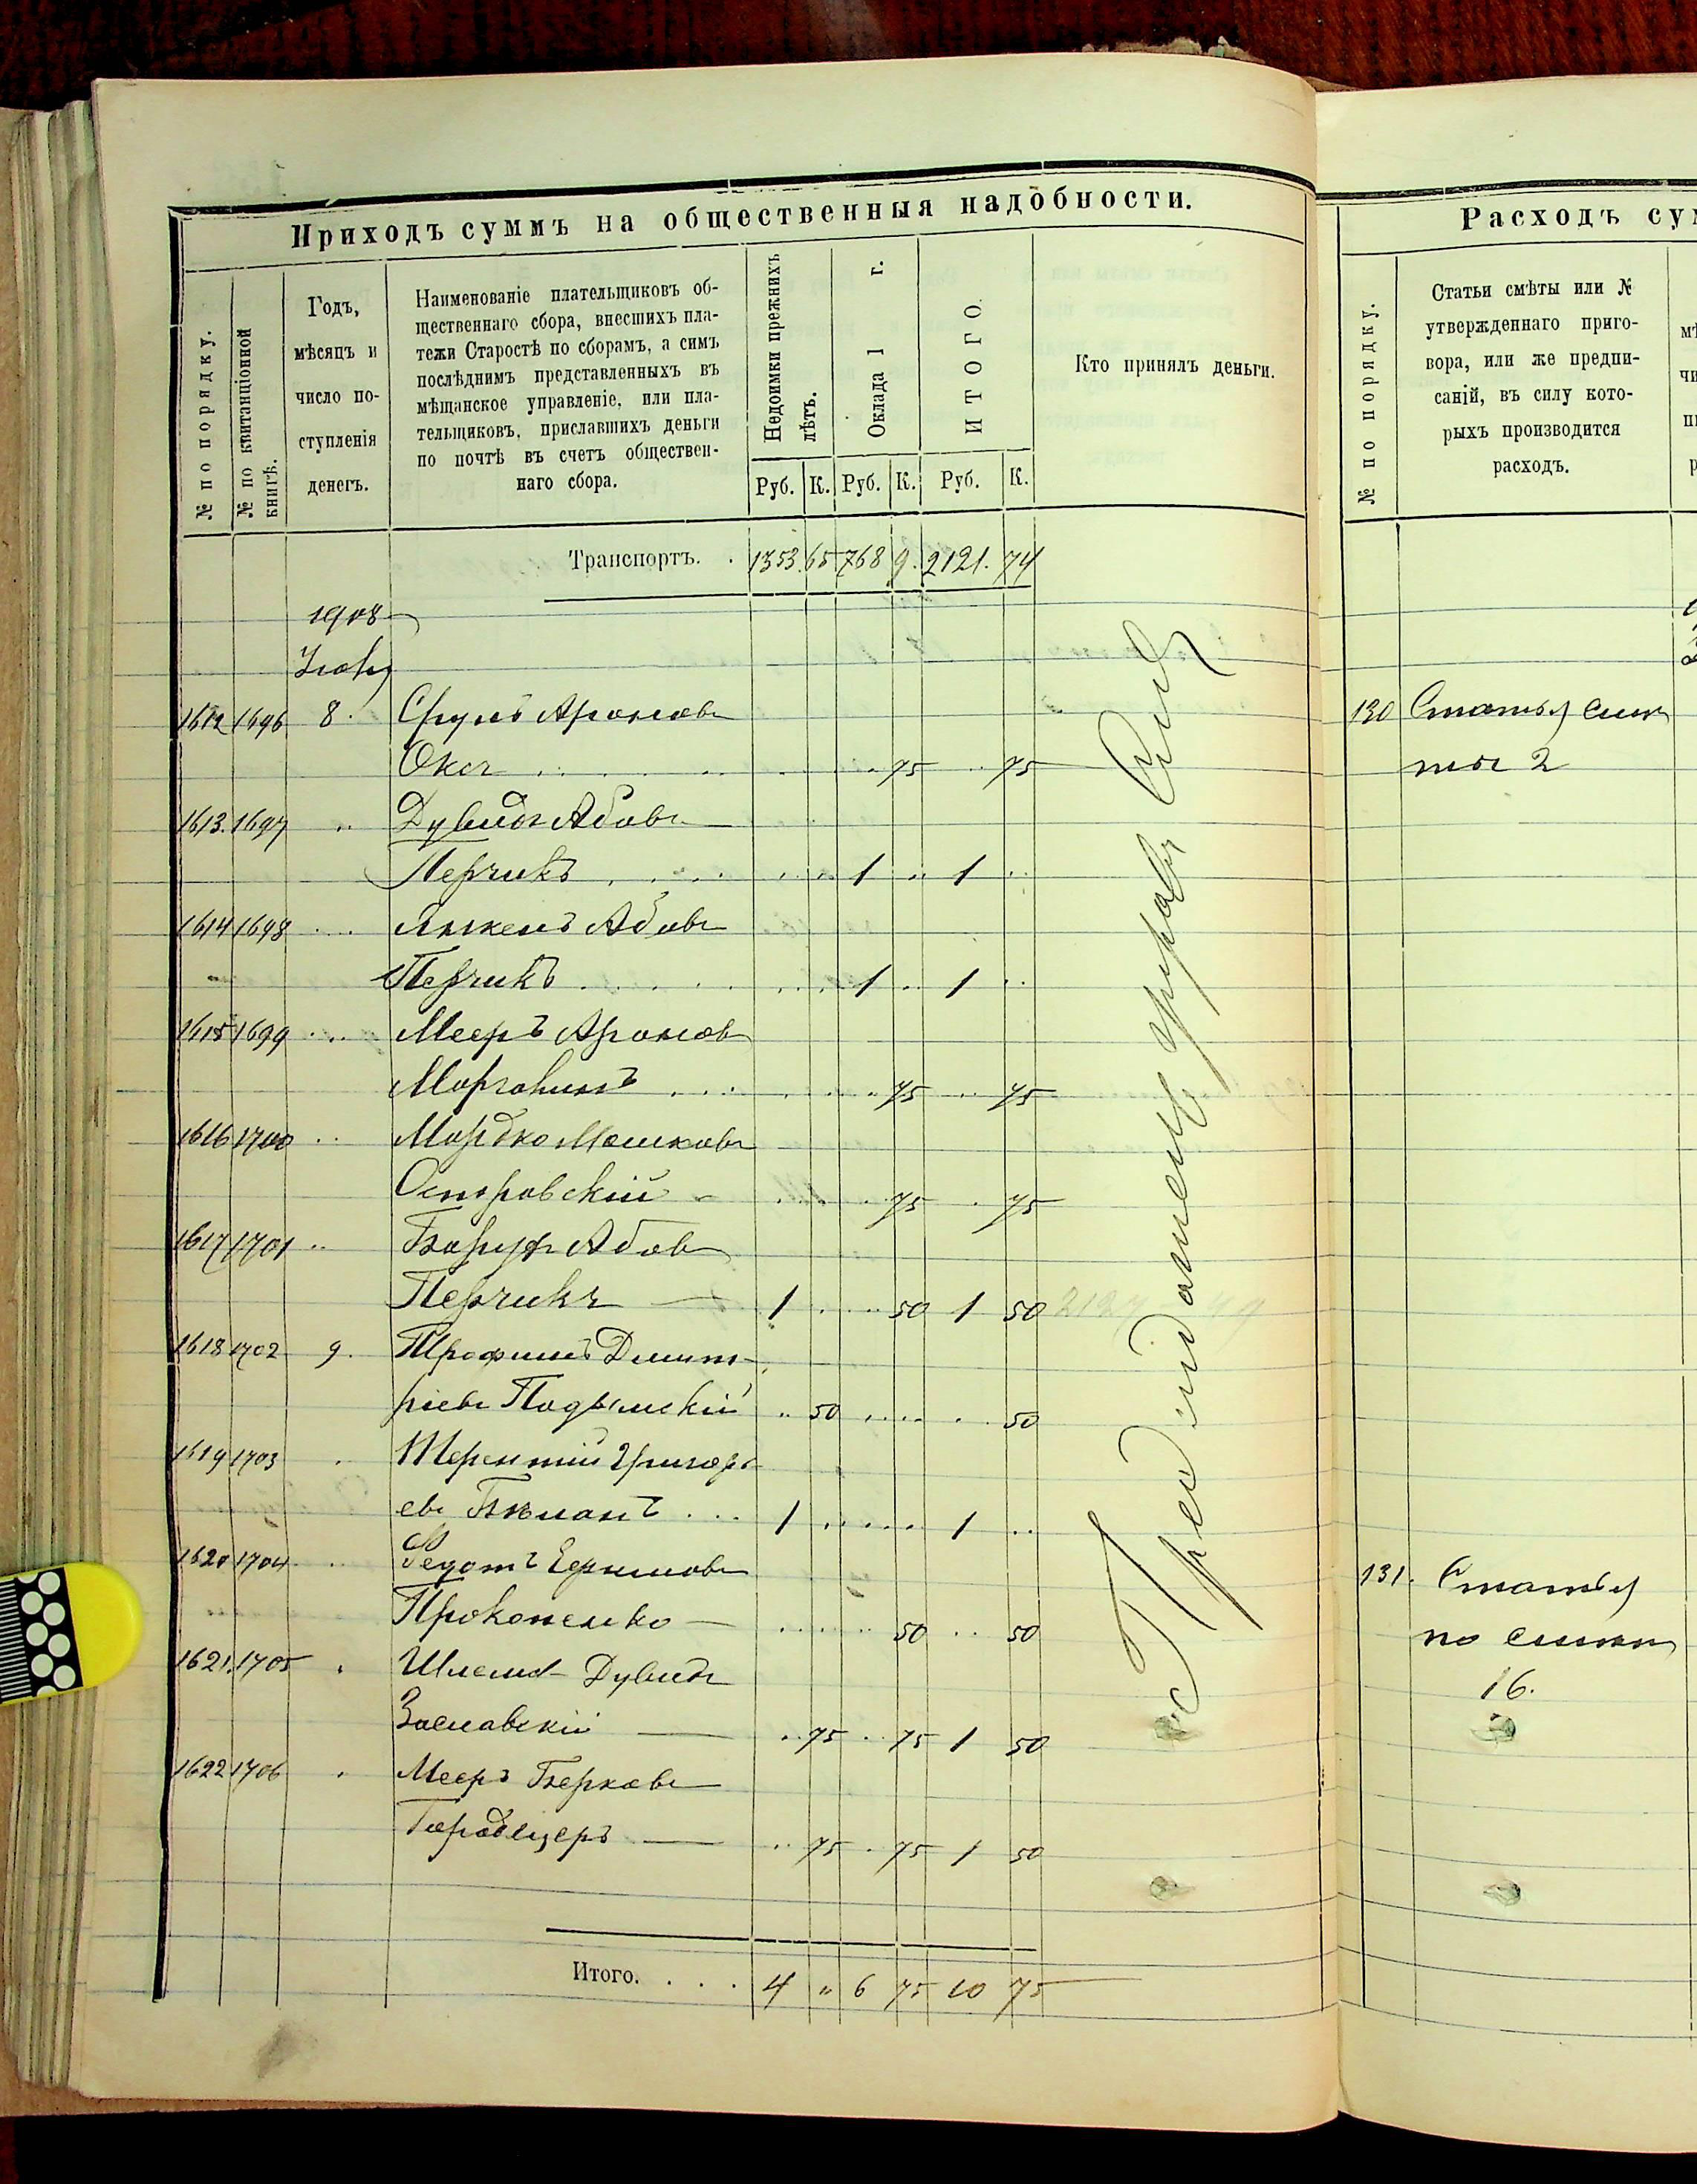 Приходъ суммъ на общественныя надобности.
№ по порядку.
№ по квитанціонной книгѣ.
Годъ,
мѣсяцъ и
число по-
ступленія
денегъ.
Наименованіе плательщиковъ об-
щественнаго сбора, внесшихъ пла-
тежи Старостѣ по сборамъ, а симъ
послѣднимъ представленныхъ въ
мѣщанское управленіе, или пла-
тельщиковъ, приславшихъ деньги
по почтѣ въ счетъ обществен-
наго сбора.
Недоимки прежнихъ лѣтъ.
Оклада 1 г.
ИТОГО.
Кто принялъ деньги.
Руб. К. Руб. К. Руб. К.
Транспортъ. . 1353. 65 768 9. 2121. 74
1908
1612 1696 8. Сруль Ароновъ
Оксъ 75 75
1613. 1697 " Дувидъ Абовъ
Перчикъ 1 " 1 "
1614 1698 " Янкель Абовъ
Перчикъ 1 " 1 "
1615 1699 " Мееръ Ароновъ
75 75
1616 1700 " Мордко Мошковъ
Островскій 75 75
1617 1701 " Борухъ Абовъ
Перчикъ 1 50 1 50
1618 1702 9. Трофимъ Димит-
ріевъ " 50 50
1619 1703 Терентій Григорь-
евъ 1 1 "
1620 1704 Федотъ
Прокопенко 50 50
1621. 1705 Шлема Дувидъ
Заславскій 75 75 1 50
1622 1706 Мееръ Берковъ
Городецеръ 75 75 1 50
Итого. . . . 4 " 6 75 10 75
Расходъ су
№ по порядку.
Статьи смѣты или №
утвержденнаго приго-
вора, или же предпи-
саній, въ силу кото-
рыхъ производится
расходъ.
130 Статья смѣ
ты 2
131. Статья
по смѣтѣ
16.